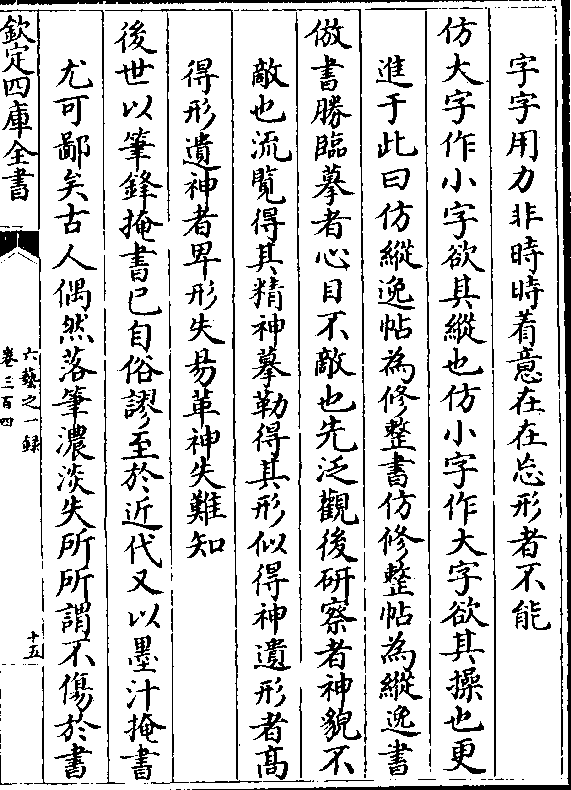 字字用力非時時着意在在忘形者不能
仿大字作小字欲其縱也仿小字作大字欲其操也更
進于此曰仿縱逸帖為修整書仿修整帖為縱逸書
倣書勝臨摹者心目不敵也先泛觀後研察者神貌不
敵也流覽得其精神摹勒得其形似得神遺形者高
得形遺神者卑形失易革神失難知
後世以筆鋒掩書已自俗謬至於近代又以墨汁掩書
尤可鄙矣古人偶然落筆濃淡失所所謂不傷於書
欽定四庫全書
六藝之一録
卷三百四
十五